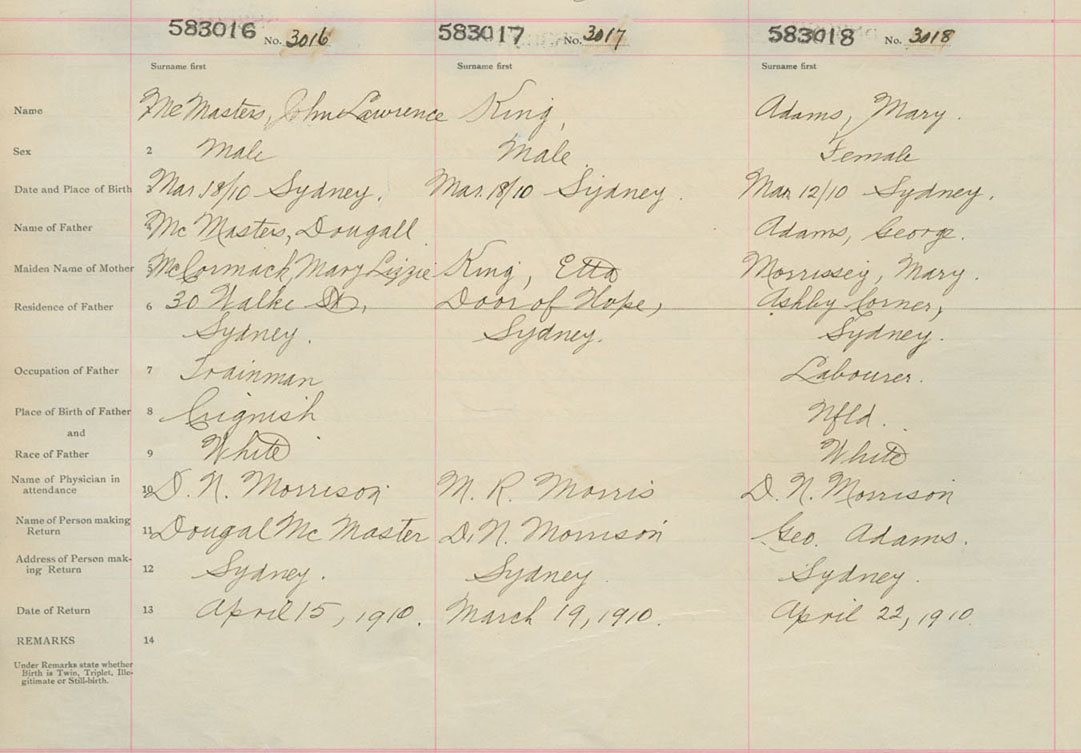 583016 No. 3016 583017 No. 3017 583018 No. 3018
Surname first Surname first Surname first
Name McMasters, John Lawrence King, Adams, Mary.
Sex 2 Male Male Female
Date and Place of Birth 3 Mar 18/10 Sydney. Mar. 18/10 Sydney. Mar. 12/10 Sydney.
Name of Father 4 McMasters, Dougall Adams, George.
Maiden Name of Mother 5 McCormack, Mary Lizzie King, Etta Morrissey, Mary.
Residence of Father 6 30 St, Door of Hope, Ashby Corner,
Sydney. Sydney. Sydney.
Occupation of Father 7 Trainman Labourer.
Place of Birth of Father 8 Nfld.
and
Race of Father 9 White White
Name of Physician in
attendance 10 D. N. Morrison M. R. Morris D. N. Morrison
Name of Person making
Return 11 Dougal McMaster D. N. Morrison Geo. Adams.
Address of Person mak-
ing Return 12 Sydney. Sydney. Sydney.
Date of Return 13 April 15, 1910. March 19, 1910. April 22, 1910.
REMARKS 14
Under Remarks state whether
Birth is Twin, Triplet, Ille-
gitimate or Still-birth.